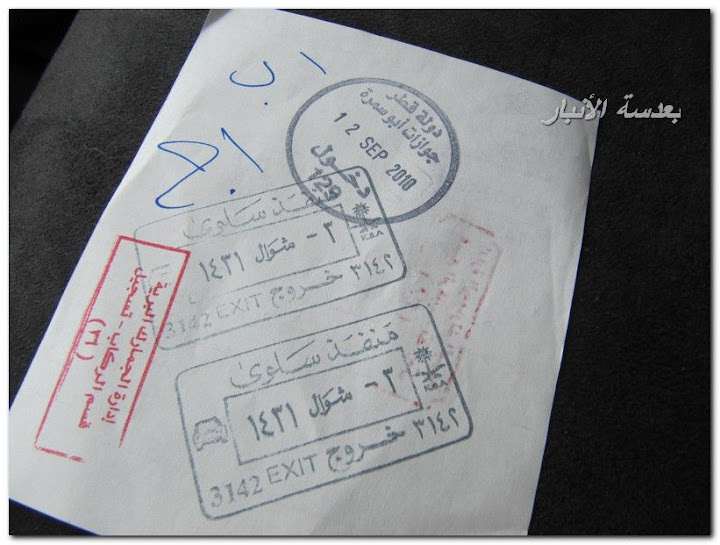 بعدسة الأنبار
دولة قطر
جوازات أبو سمرة
12 SEP 2010
دخول
129
منفذ سلوى
٣ - شوال ١٤٣١
٣١٤٢ خروج
3142 EXIT
KSA
منفذ سلوى
٣ - شوال ١٤٣١
٣١٤٢ خروج
3142 EXIT
KSA
إدارة الجمارك البرية
قسم الركاب - تسجيل
(٣١)